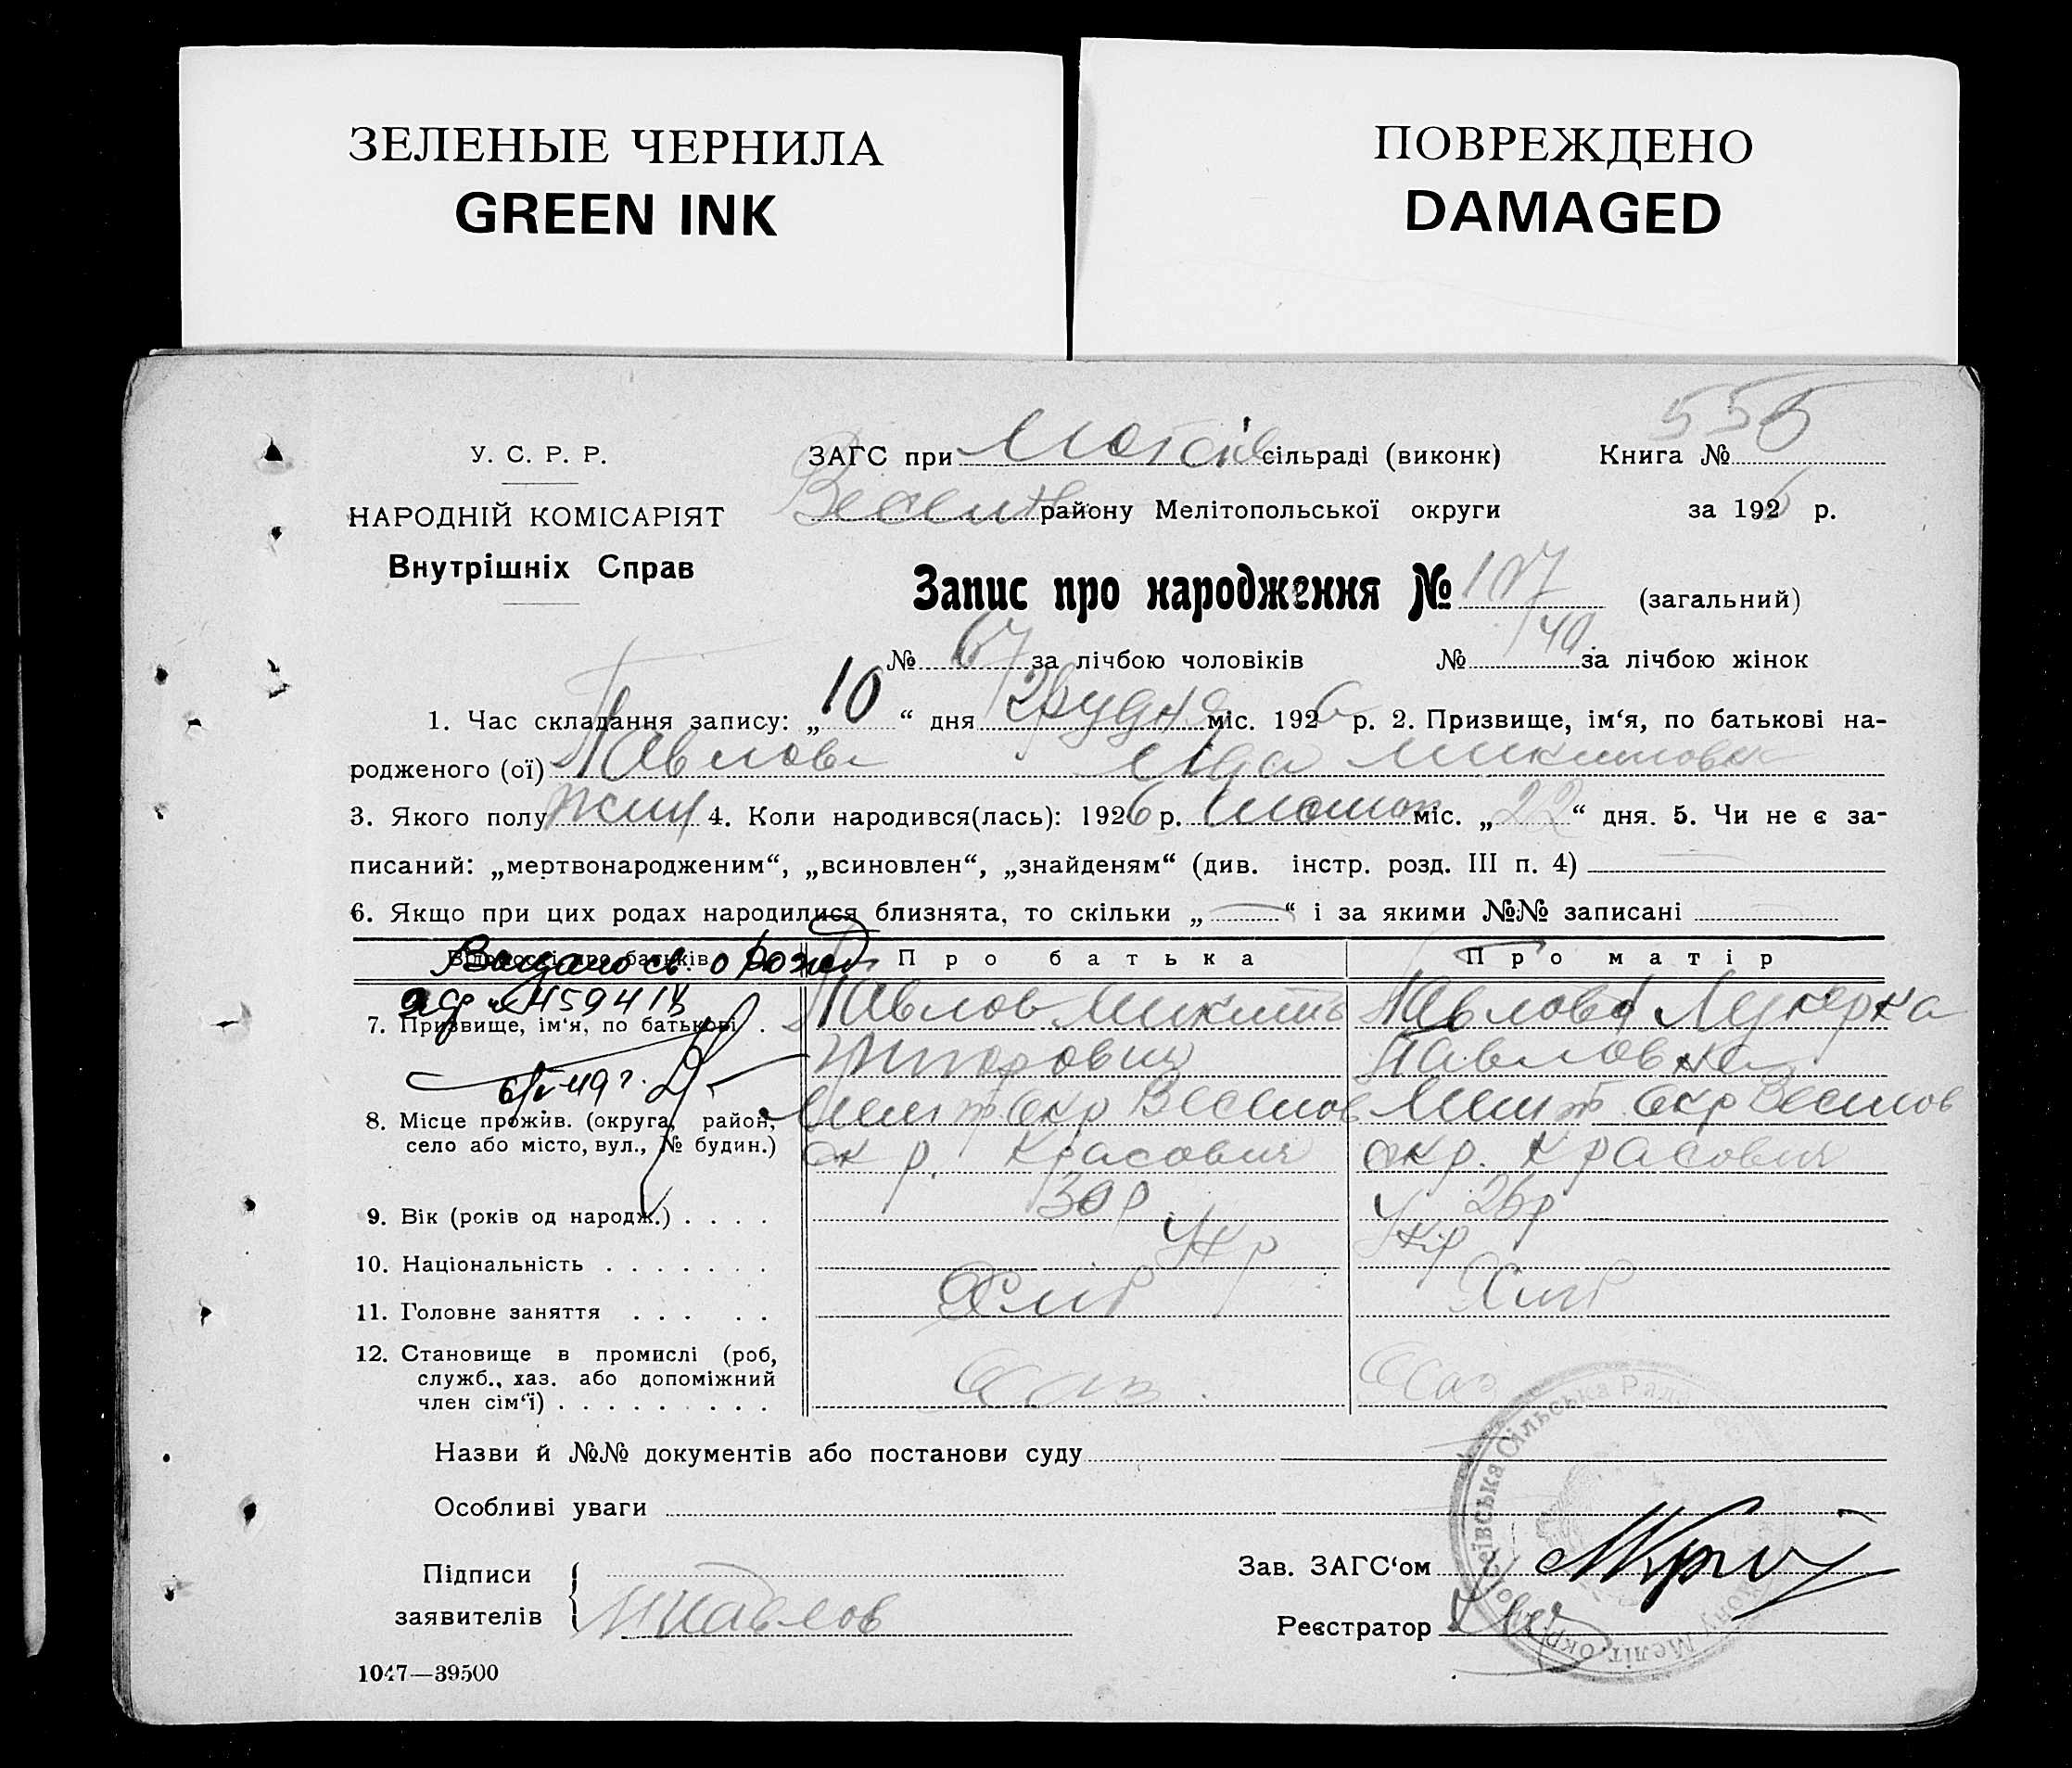 ЗЕЛЕНЫЕ ЧЕРНИЛА
GREEN INK
ПОВРЕЖДЕНО
DAMAGED
У. С. Р. Р.
НАРОДНІЙ КОМІСАРІЯТ
Внутрішніх Справ
ЗАГС при сільраді (виконк)
району Мелітопольської округи
Книга № 556
за 1926 р.
Запис про народження № 107 (загальний)
№ 67 за лічбою чоловіків № 40 за лічбою жінок
1. Час складання запису: „10“ дня Грудня міс. 1926 р. 2. Призвище, ім‘я, по батькові на-
родженого (ої) Павлова Микитовна
3. Якого полу жіщ 4. Коли народився(лась): 1926 р. міс. „22“ дня. 5. Чи не є за-
писаний: „мертвонародженим“, „всиновлен“, „знайденям“ (див. інстр. розд. III п. 4)
6. Якщо при цих родах народилися близнята, то скільки „ “ і за якими №№ записані
Відомості про батьків Про батька Про матір
7. Призвище, ім‘я, по батькові . Павлов Микита Павлова Лукерка
Павловна
8. Місце прожив. (округа, район, Меліт окр Веселов Меліт окр Веселов
село або місто, вул., № будин.) окр. Красович окр. Красович
9. Вік (років од народж.) . . . . 30 р 26 р
10. Національність . . . . . . . Укр Укр
11. Головне заняття . . . . . Хліб Хліб
12. Становище в промислі (роб, служб., хаз. або допоміжний член сім‘ї) . . . . . . . . . Хаз Хаз
Назви й №№ документів або постанови суду
Особливі уваги
Підписи
заявителів Павлов
Зав. ЗАГС‘ом
Реєстратор
1047—39500